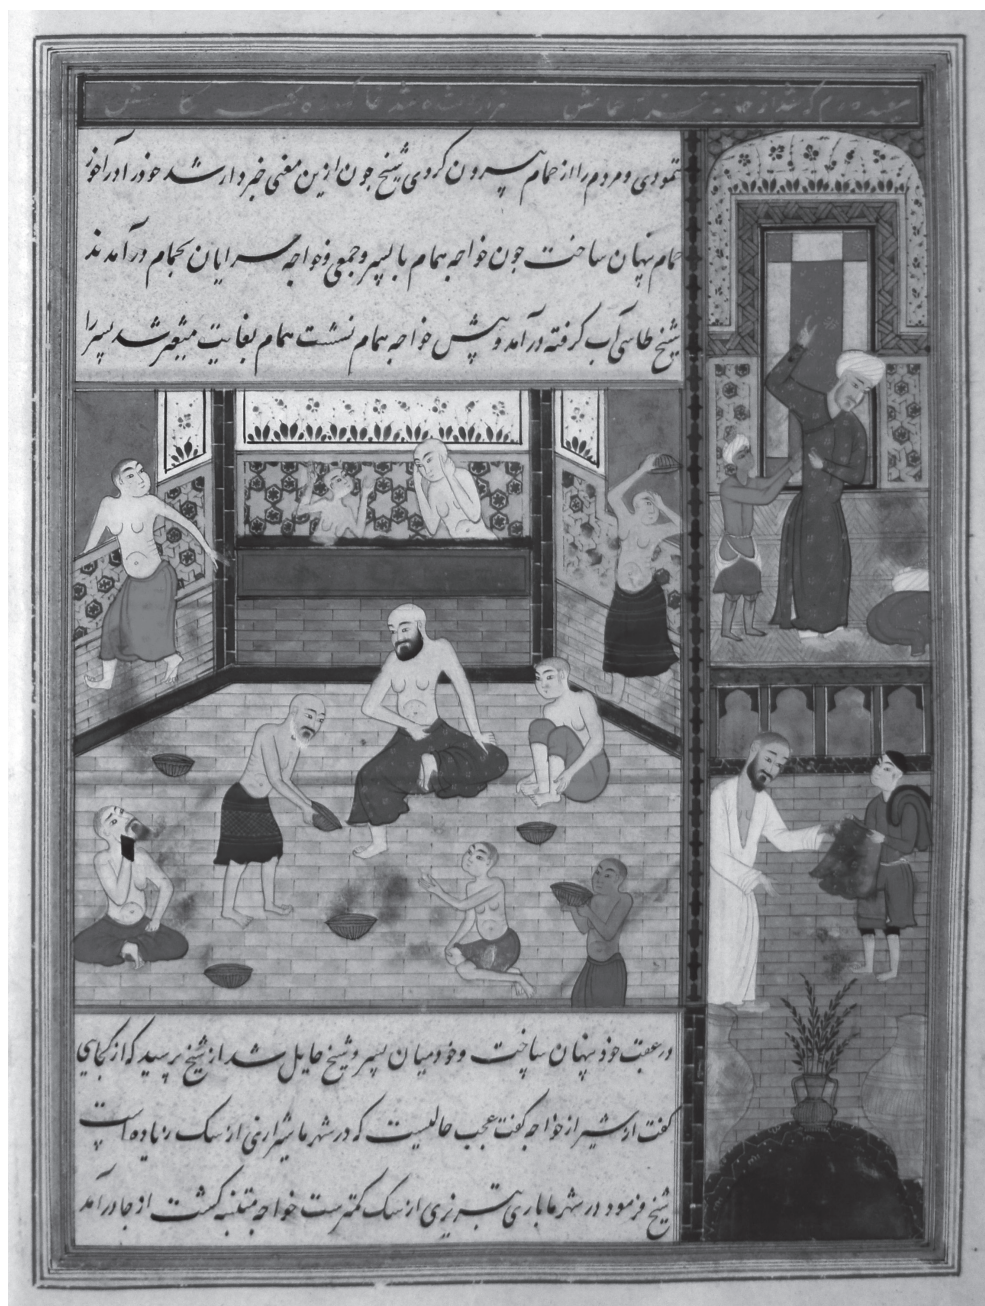 نمودی و مردم را از حمام بیرون کردی شیخ جون ازین معنی خبردار شد خود را در آخر
حمام پنهان ساخت جون خواجه همام با پسر و جمعی خواجه سرایان بحمام درآمدند
شیخ طاسی آب گرفته درآمد و پیش خواجه همام نشست همام بغایت متغیر شد پسر را
در عقب خود پنهان ساخت و خود میان پسر و شیخ حایل شد از شیخ پرسید که از کجایی
گفت از شیراز خواجه گفت عجب حالیست که در شهر ما شیرازی از سک زیاده است
شیخ فرمود در شهر ما باری تبریزی از سک کمترست خواجه متنبه گشت از جا درآمد